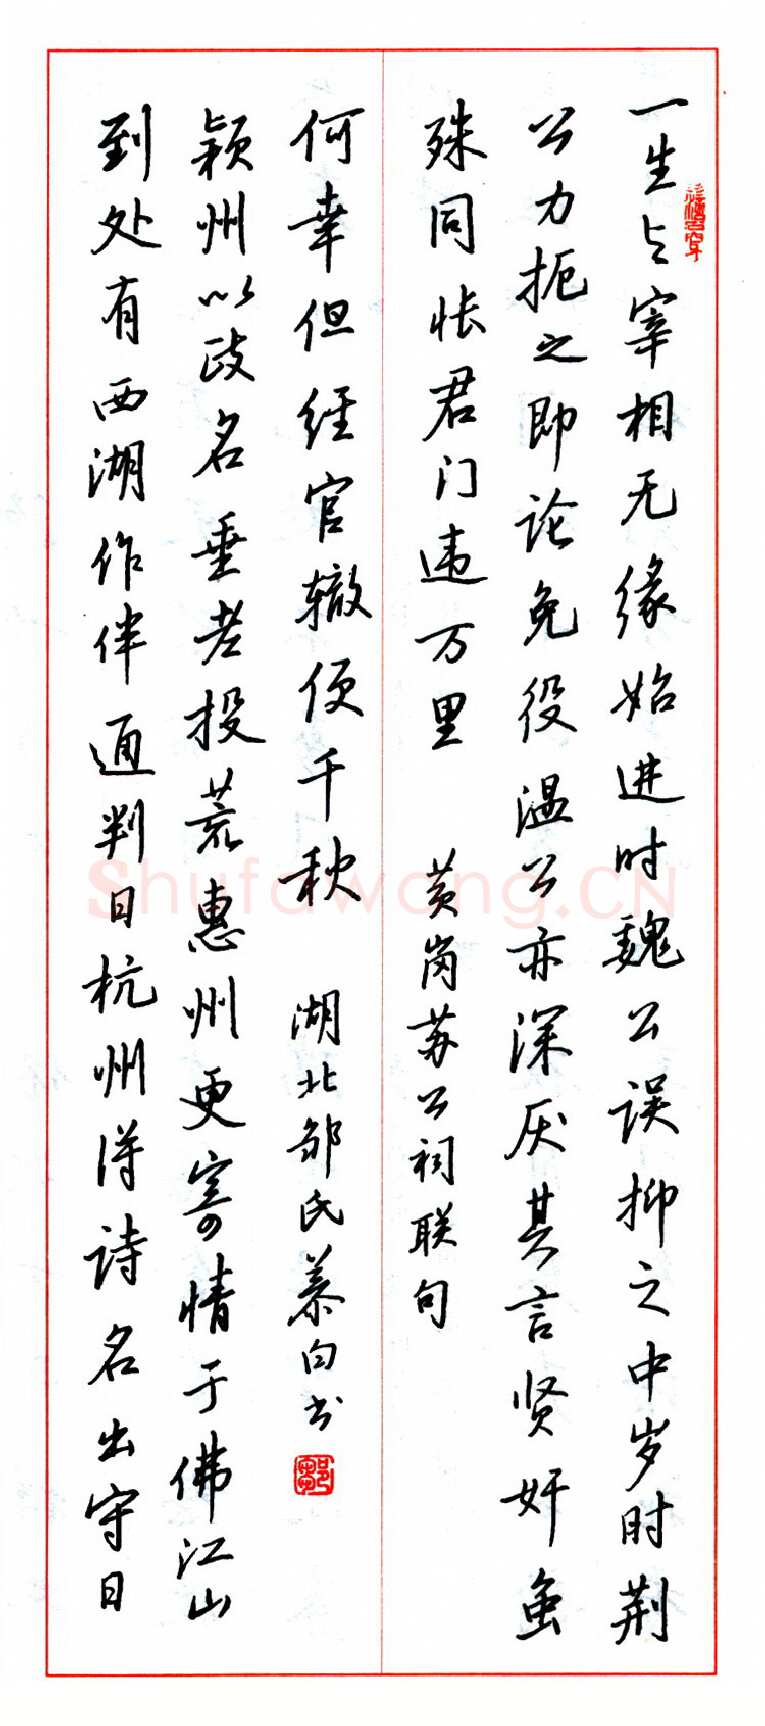 一生与宰相无缘始进时魏公误抑之中岁时荆
公力扼之即论免役温公亦深厌其言贤奸虽
殊同怅君门违万里 黄岗苏公祠联句
到处有西湖作伴通判日杭州得诗名出守日
颖州以政名垂老投荒惠州更寄情于佛江山
何幸但经官辙便千秋 湖北邹氏慕白书
鄒
Shufawang.CN